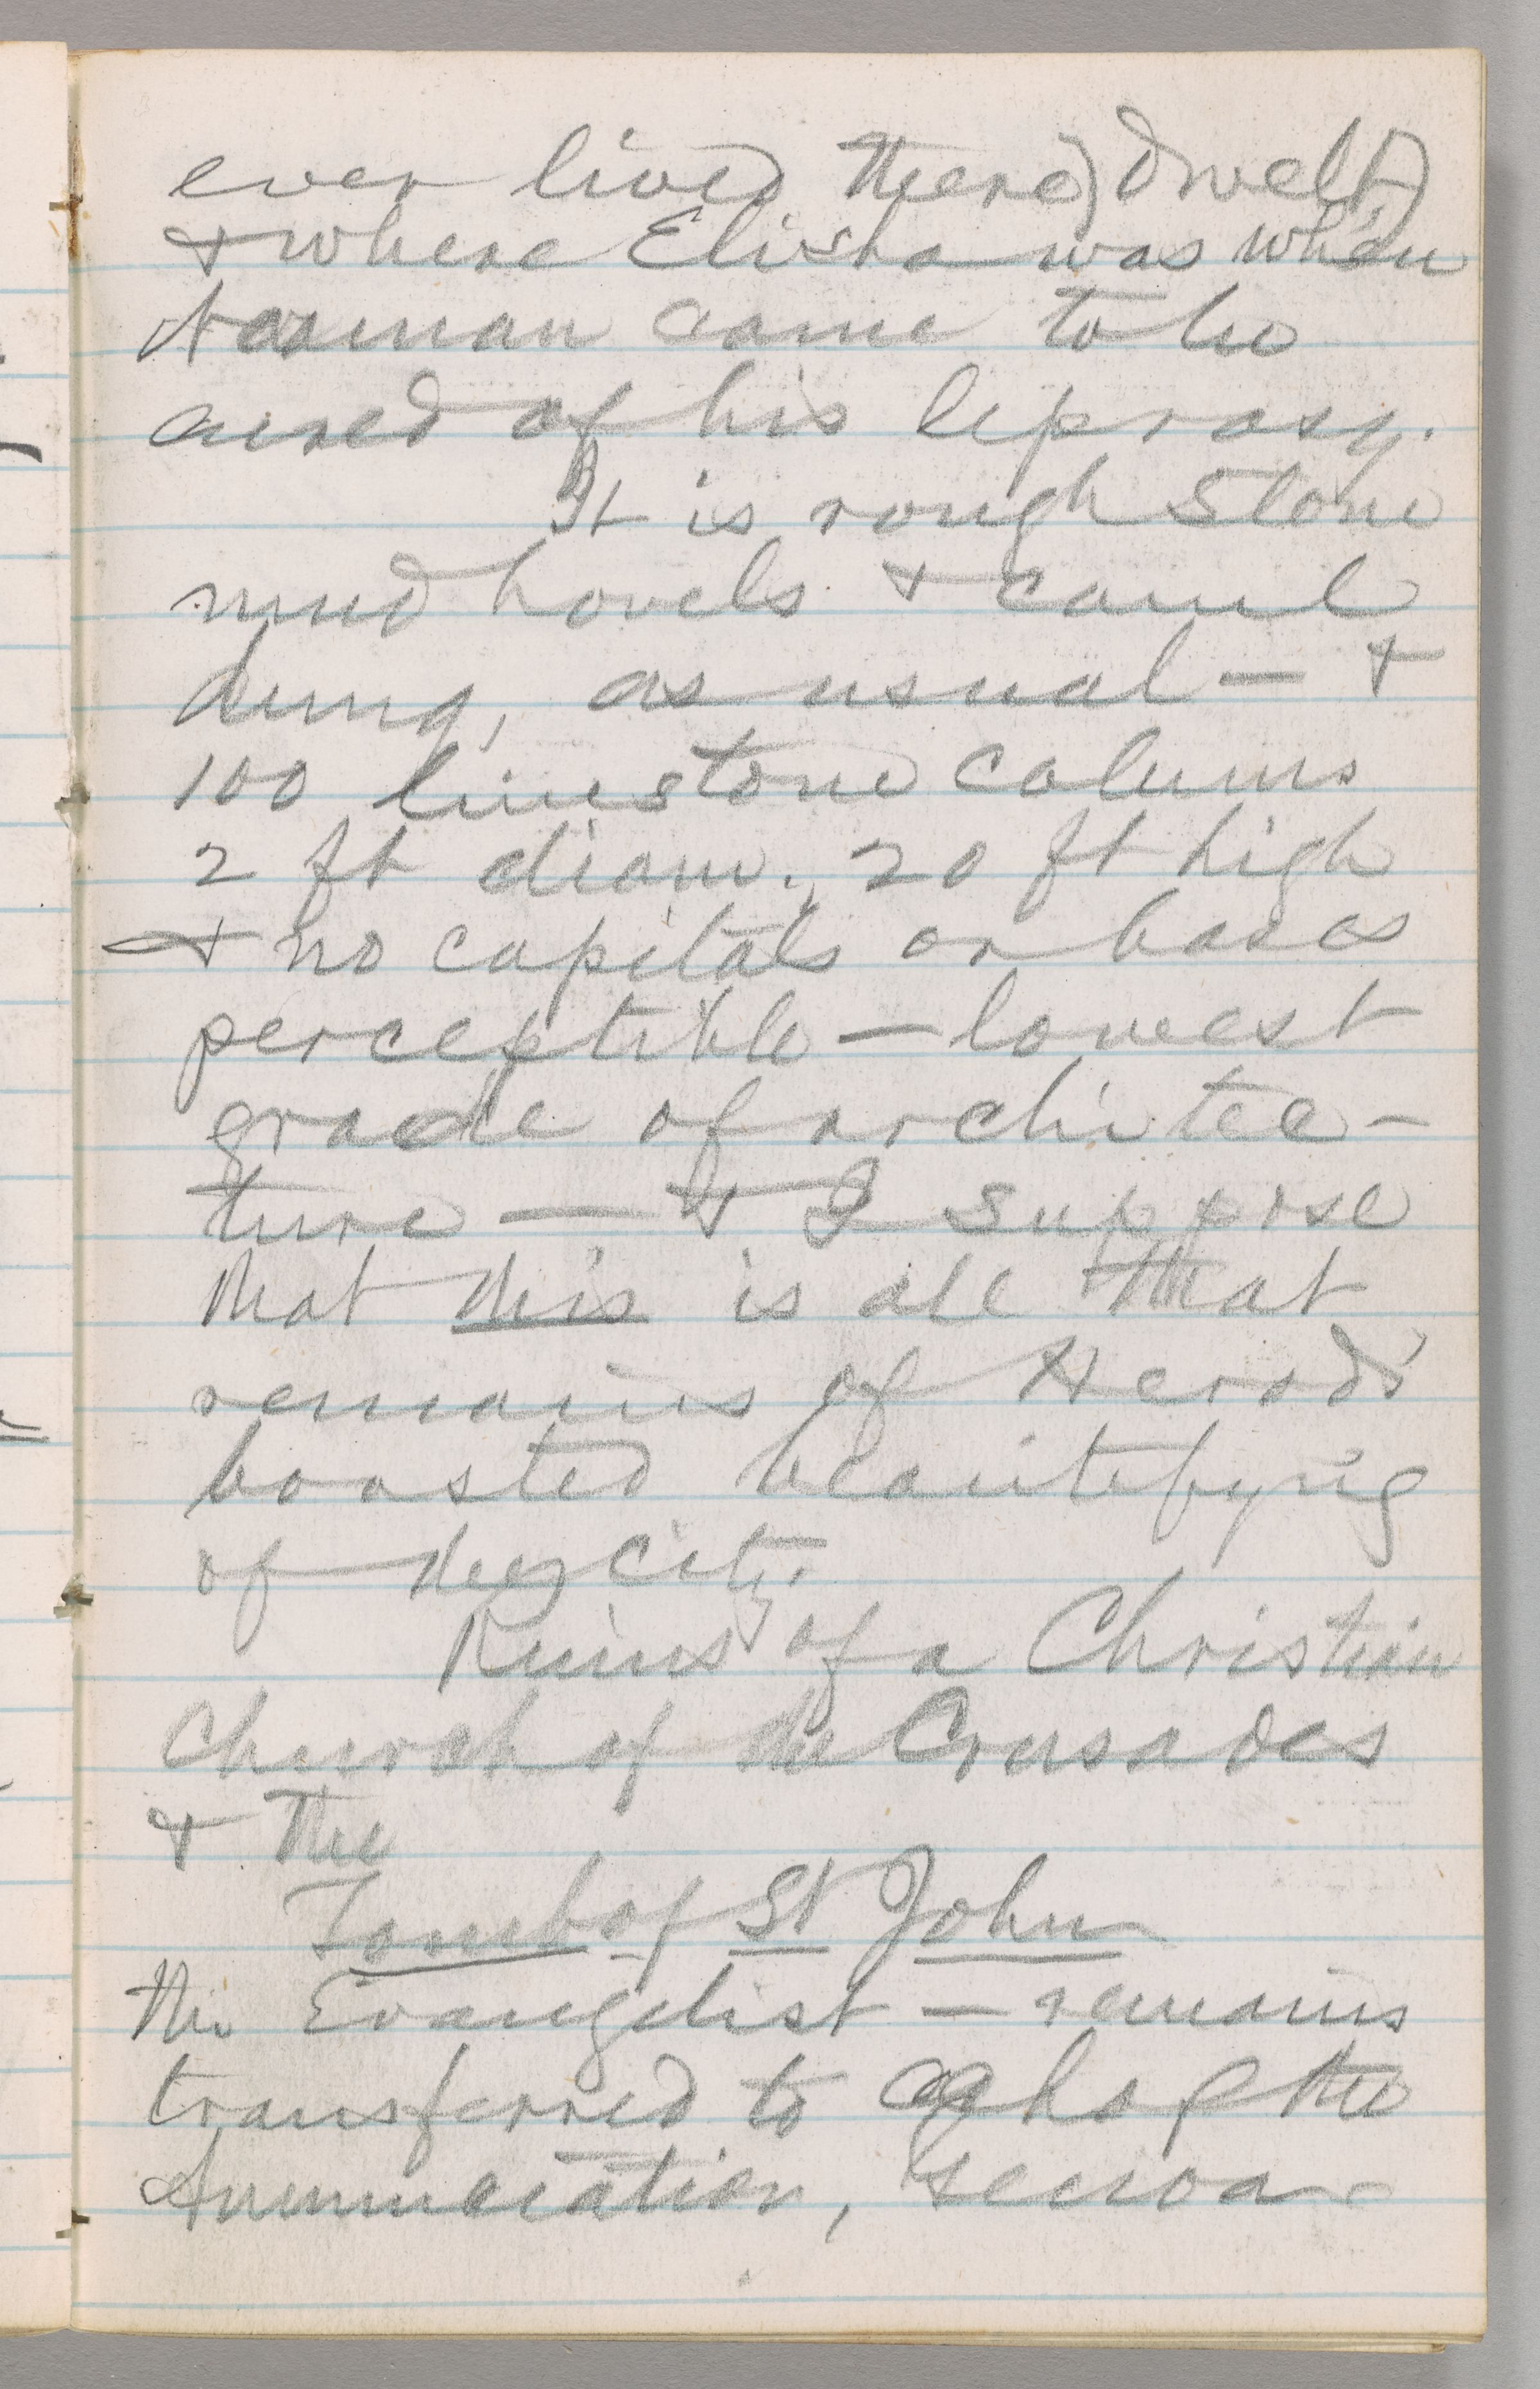 ever lived there) dwelt,)
& where Elisha was when
Naaman came to be
cured of his leprosy.
It is rough stone
mud hovels & camel
dung, as usual — &
100 limestone colums
2 ft diam., 20 ft high
& no capitals or bases
perceptible — lowest
grade of architec-
ture — & I suppose
that this is all that
remains of Herod's
boasted beautifying
of the city.
Ruins of a Christian
Church of the Crusades
& the
Tomb of St John
the Evangelist — remains
transferred to Ch of the
Annunciation, Genoa